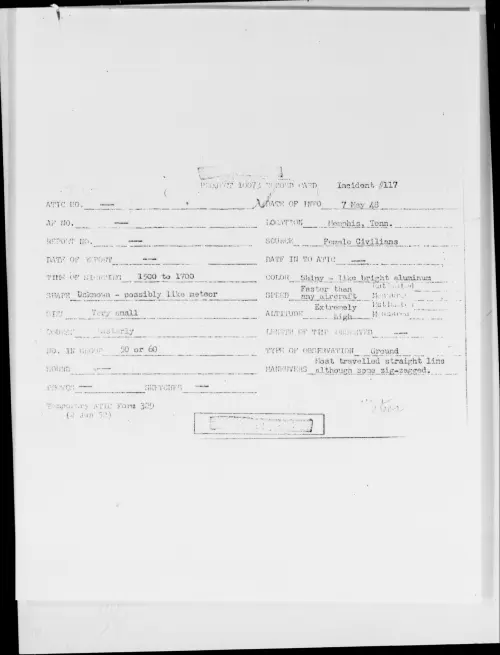 PROJECT 10073 RECORD CARD Incident #117
ATIC NO. — DATE OF INFO 7 May 48
AF NO. — LOCATION Memphis, Tenn.
REPORT NO. — SOURCE Female Civilians
DATE OF REPORT — DATE IN TO ATIC —
TIME OF SIGHTING 1500 to 1700 COLOR Shiny - like bright aluminum
SHAPE Unknown - possibly like meteor SPEED Faster than any aircraft
SIZE Very small ALTITUDE Extremely high
COURSE LENGTH OF TIME OBSERVED —
NO. IN GROUP 50 or 60 TYPE OF OBSERVATION Ground
SOUND — MANEUVERS Most travelled straight line
although some zig-zagged.
PHOTOS — SKETCHES —
Temporary ATIC Form 329
(2 Jan 52)